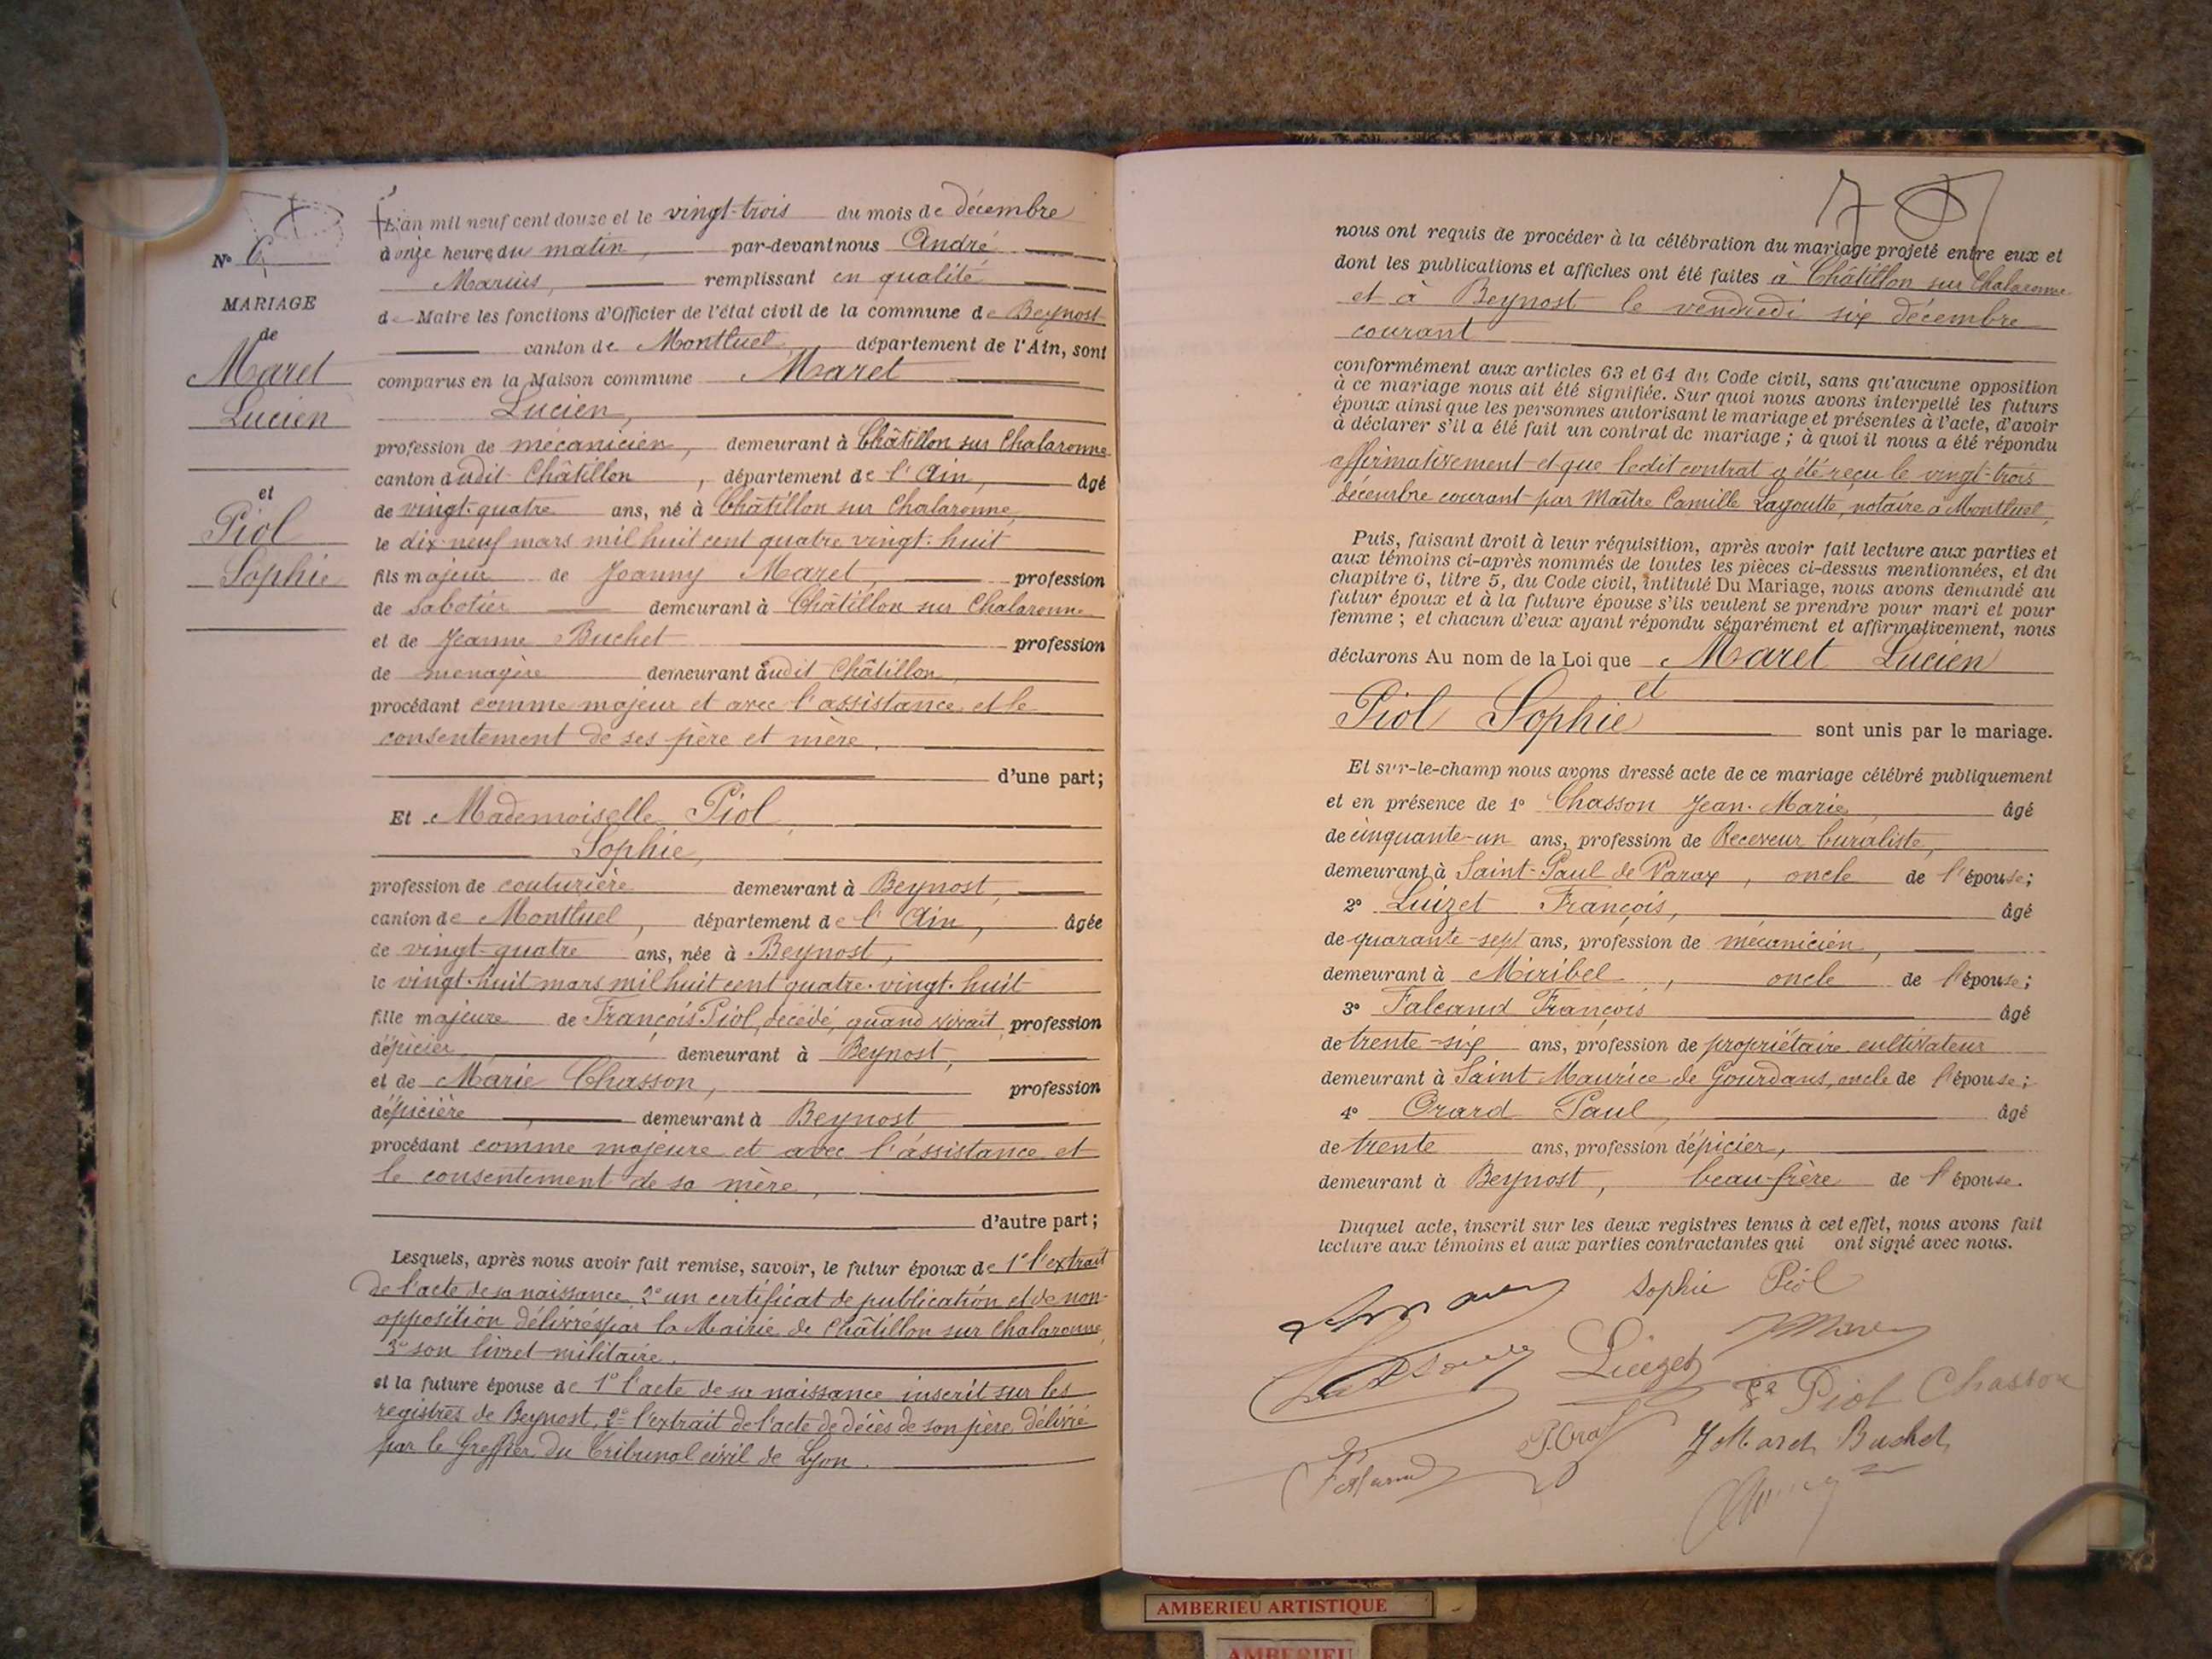 N° 6
MARIAGE
de
Maret
Lucien
et
Piol
Sophie
L'an mil neuf cent douze et le vingt-trois du mois de décembre
à onze heure du matin, par-devant nous André
Marius, remplissant en qualité
de Maire les fonctions d'Officier de l'état civil de la commune de Beynost
canton de Montluel, département de l'Ain, sont
comparus en la Maison commune Maret
Lucien,
profession de mécanicien, demeurant à Châtillon sur Chalaronne
canton dudit Châtillon, département de l'Ain, âgé
de vingt-quatre ans, né à Châtillon sur Chalaronne,
le dix-neuf mars mil huit cent quatre vingt-huit
fils majeur de Joanny Maret, profession
de Sabotier demeurant à Châtillon sur Chalaronne
et de Jeanne Buchet profession
de ménagère demeurant audit Châtillon,
procédant comme majeur et avec l'assistance et le
consentement de ses père et mère,
d'une part;
Et Mademoiselle Piol,
Sophie,
profession de couturière demeurant à Beynost,
canton de Montluel, département de l'Ain, âgée
de vingt-quatre ans, née à Beynost,
le vingt-huit mars mil huit cent quatre-vingt-huit
fille majeure de François Piol, décédé, quand vivait profession
d'épicier demeurant à Beynost,
et de Marie Chasson, profession
d'épicière, demeurant à Beynost
procédant comme majeure et avec l'assistance et
le consentement de sa mère,
d'autre part;
Lesquels, après nous avoir fait remise, savoir, le futur époux de 1° l'extrait
de l'acte de sa naissance, 2° un certificat de publication et de non-
opposition délivrés par la Mairie de Châtillon sur Chalaronne,
3° son livret militaire.
et la future épouse de 1° l'acte de sa naissance inscrit sur les
registres de Beynost, 2° l'extrait de l'acte de décès de son père délivré
par le Greffier du Tribunal civil de Lyon.
nous ont requis de procéder à la célébration du mariage projeté entre eux et
dont les publications et affiches ont été faites à Châtillon sur Chalaronne
et à Beynost le vendredi six décembre
courant
conformément aux articles 63 et 64 du Code civil, sans qu'aucune opposition
à ce mariage nous ait été signifiée. Sur quoi nous avons interpellé les futurs
époux ainsi que les personnes autorisant le mariage et présentes à l'acte, d'avoir
à déclarer s'il a été fait un contrat de mariage ; à quoi il nous a été répondu
affirmativement et que ledit contrat a été reçu le vingt-trois
décembre courant par Maître Camille Lagoutte, notaire à Montluel,
Puis, faisant droit à leur réquisition, après avoir fait lecture aux parties et
aux témoins ci-après nommés de toutes les pièces ci-dessus mentionnées, et du
chapitre 6, titre 5, du Code civil, intitulé Du Mariage, nous avons demandé au
futur époux et à la future épouse s'ils veulent se prendre pour mari et pour
femme ; et chacun d'eux ayant répondu séparément et affirmativement, nous
déclarons Au nom de la Loi que Maret Lucien
et
Piol Sophie sont unis par le mariage.
Et sur-le-champ nous avons dressé acte de ce mariage célébré publiquement
et en présence de 1° Chasson Jean-Marie, âgé
de cinquante-un ans, profession de Receveur buraliste,
demeurant à Saint-Paul de Varax, oncle de l'épouse;
2° Luizet François, âgé
de quarante-sept ans, profession de mécanicien,
demeurant à Miribel, oncle de l'épouse;
3° Falcand François âgé
de trente-six ans, profession de propriétaire cultivateur
demeurant à Saint Maurice de Gourdans, oncle de l'épouse;
4° Orard Paul, âgé
de trente ans, profession d'épicier,
demeurant à Beynost, beau-frère de l'épouse.
Duquel acte, inscrit sur les deux registres tenus à cet effet, nous avons fait
lecture aux témoins et aux parties contractantes qui ont signé avec nous.
Sophie Piol
Luizet
Piol Chasson
Buchet
AMBERIEU ARTISTIQUE
AMBERIEU